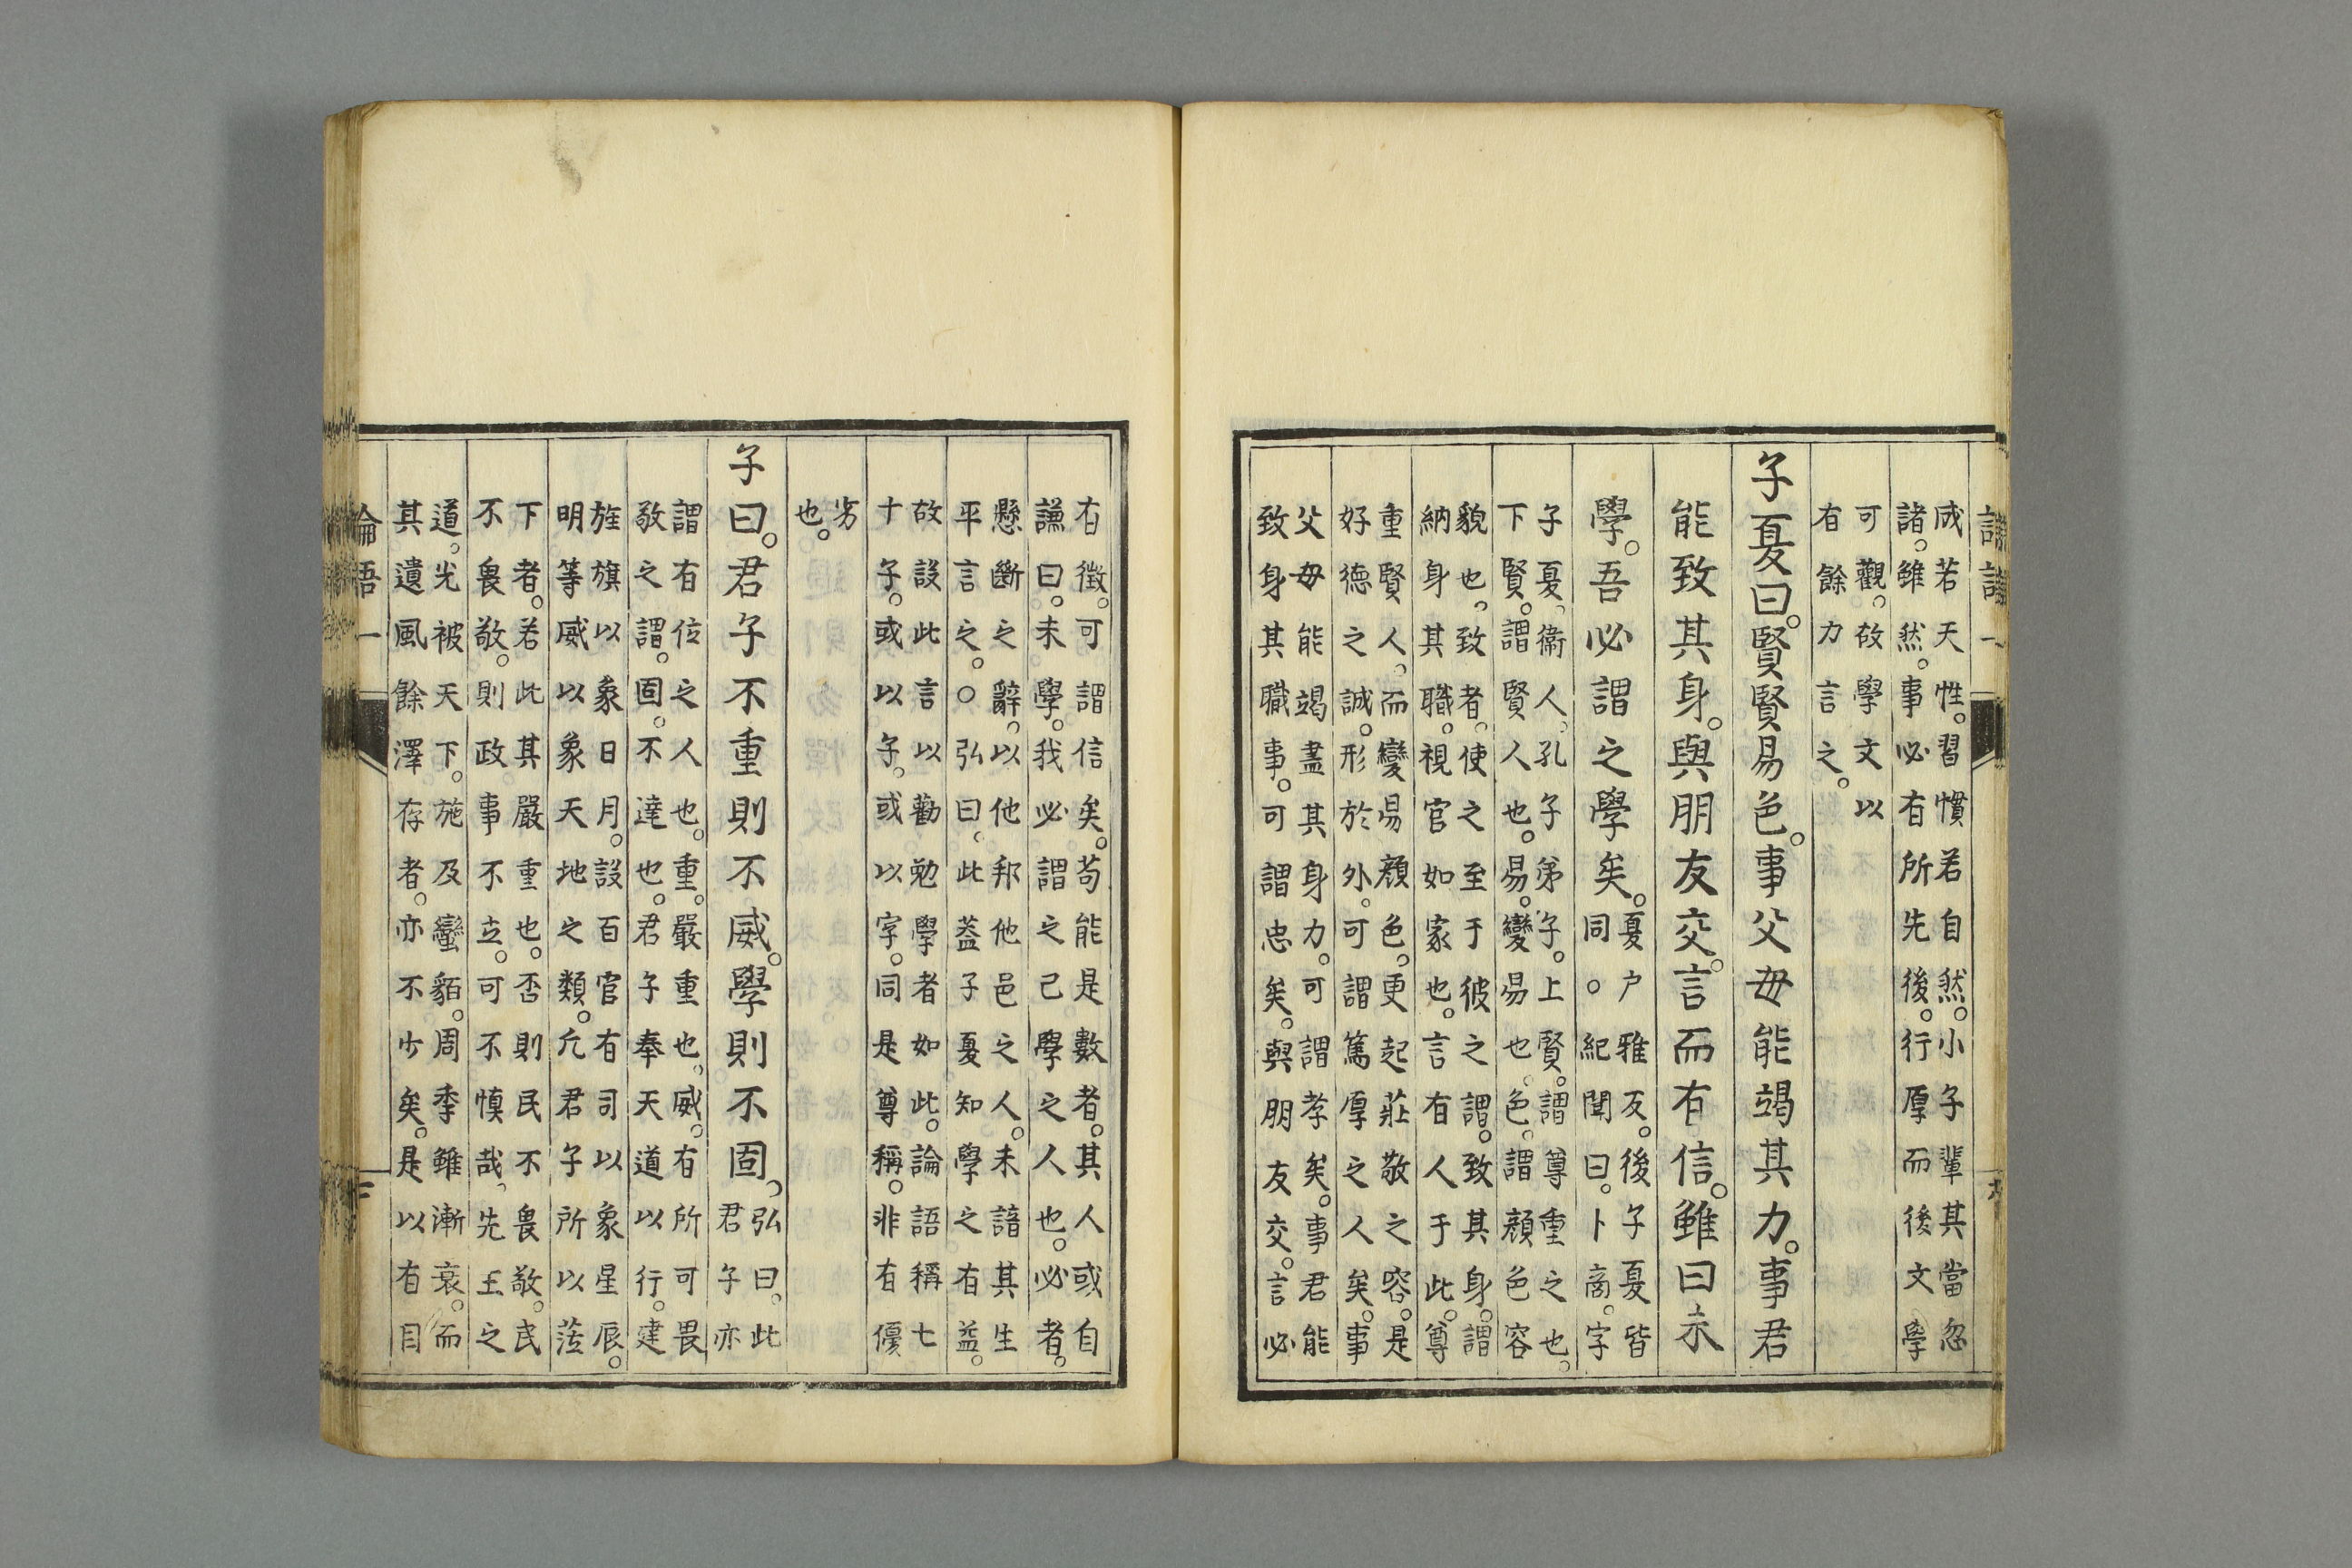 成若天性。習慣若自然。小子輩其當忽
諸。雖然。事必有所先後。行厚而後文學
可觀。故學文以
有餘力言之。
子夏曰。賢賢易色。事父母能竭其力。事君
能致其身。與朋友交。言而有信。雖曰未
學。吾必謂之學矣。
夏戶雅反。後子夏皆
同。○紀聞曰。卜商。字
子夏、衞人、孔子弟子。上賢。謂尊重之也。
下賢。謂賢人也。易。變易也。色。謂顏色容
貌也。致者。使之至于彼之謂。致其身。謂
納身其職。視官如家也。言有人于此。尊
重賢人。而變易顏色。更起莊敬之容。是
好德之誠。形於外。可謂篤厚之人矣。事
父母能竭盡其身力。可謂孝矣。事君能
致身其職事。可謂忠矣。與朋友交。言必
有徵。可謂信矣。苟能是數者。其人或自
謙曰。未學。我必謂之已學之人也。必者。
懸斷之辭。以他邦他邑之人。未諳其生
平言之。○弘曰。此蓋子夏知學之有益。
故設此言以勸勉學者如此。論語稱七
十子。或以子。或以字。同是尊稱。非有優
劣
也。
子曰。君子不重則不威。學則不固。
弘曰。此
君子亦
謂有位之人也。重。嚴重也。威。有所可畏
敬之謂。固。不達也。君子奉天道以行。建
旌旗以象日月。設百官有司以象星辰。
明等威以象天地之類。凢君子所以蒞
下者。若此其嚴重也。否則民不畏敬。民
不畏敬。則政事不立。可不愼哉。先王之
道。光被天下。施及蠻貊。周季雖漸衰。而
其遺風餘澤存者。亦不少矣。是以有目
論語 一